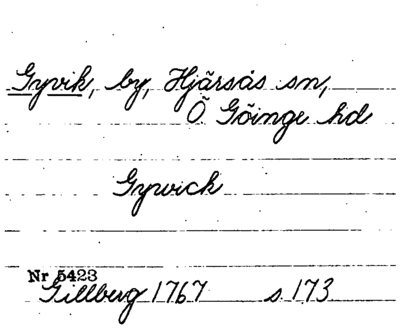 Gyvik, by, Hjärsås sn,
Ö Göinge hd
Gywick
Nr 5423
Gillberg 1767 s 173